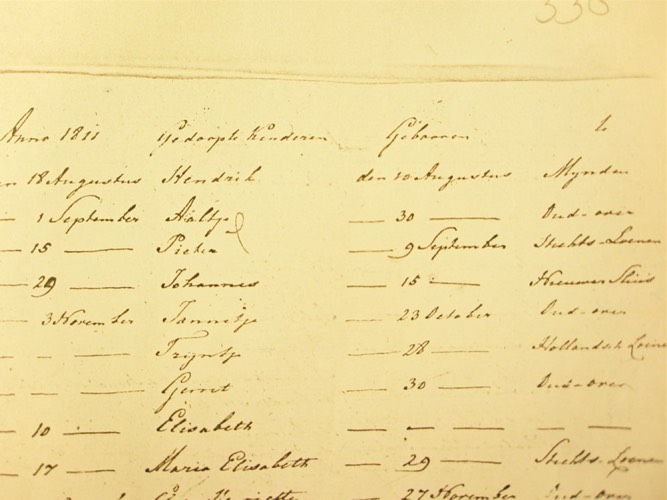 330
Anno 1811 Gedoopte Kinderen Gebooren te
18 Augustus Hendrik den 10 Augustus Mynden
— 1 September Aältje — 30 — Oud-over
— 15 — Pieter — 9 September Stichts-Loenen
— 29 — Johannes — 15 — Nieuwer Sluis
— 3 November Jannitje — 23 October Oud-over
— – — Tryntje — 28 Hollandsch Loenen
— – — Gerret — 30 — Oud-over
— 10 — Elisabeth — – — – —
— 17 — Maria Elisabeth — 29 — Stichts-Loenen
27 November Oud-over